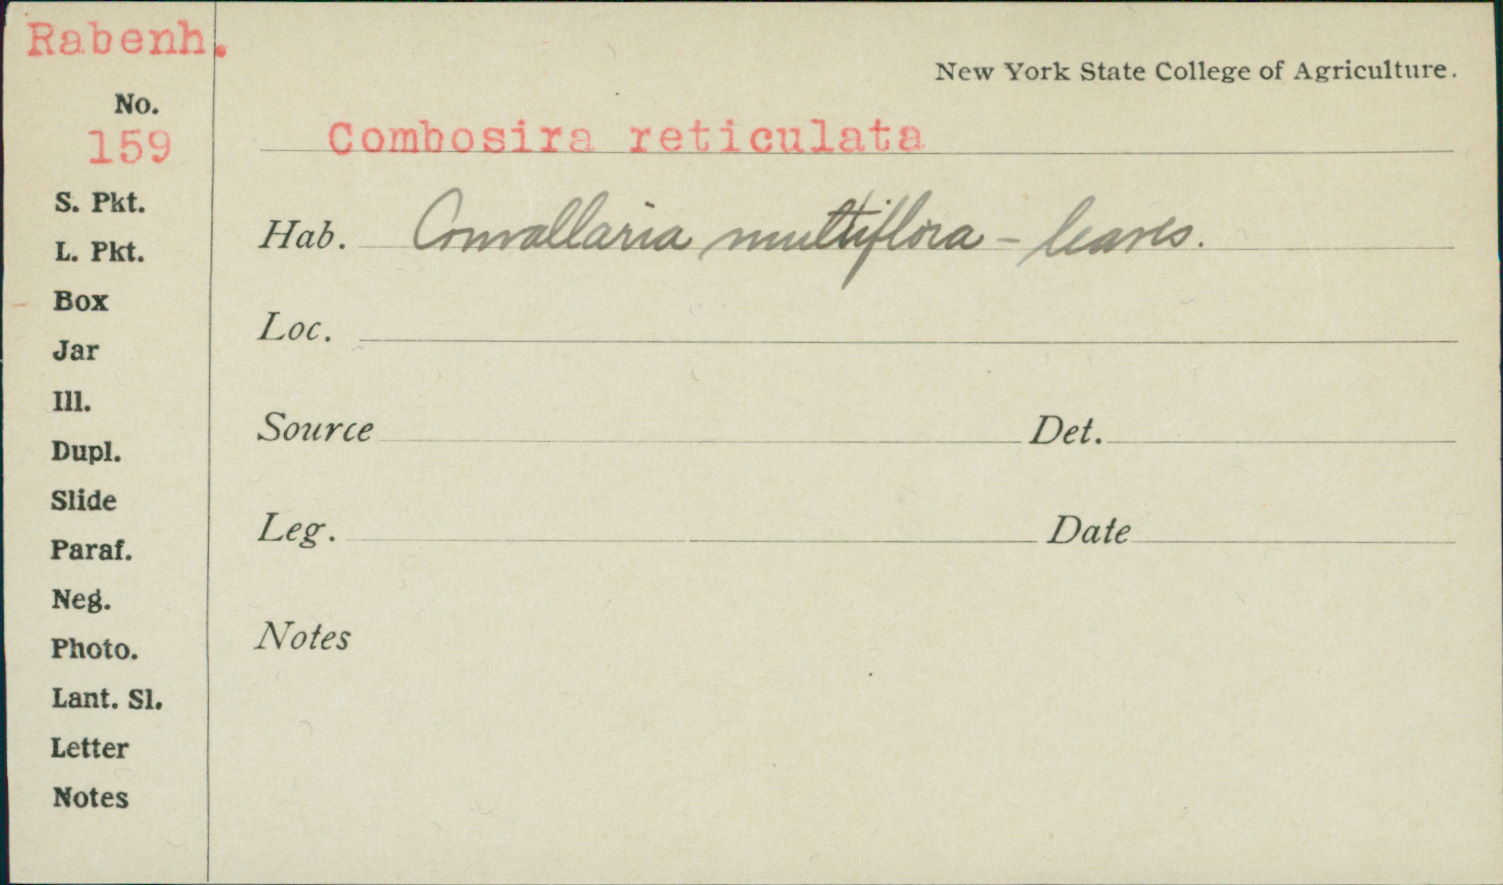 Rabenh.
New York State College of Agriculture.
No.
159
Combosira reticulata
S. Pkt.
Hab. Convallaria multiflora - leaves.
L. Pkt.
Box
Loc.
Jar
Ill.
Source Det.
Dupl.
Slide
Leg. Date
Paraf.
Neg.
Notes
Photo.
Lant. Sl.
Letter
Notes